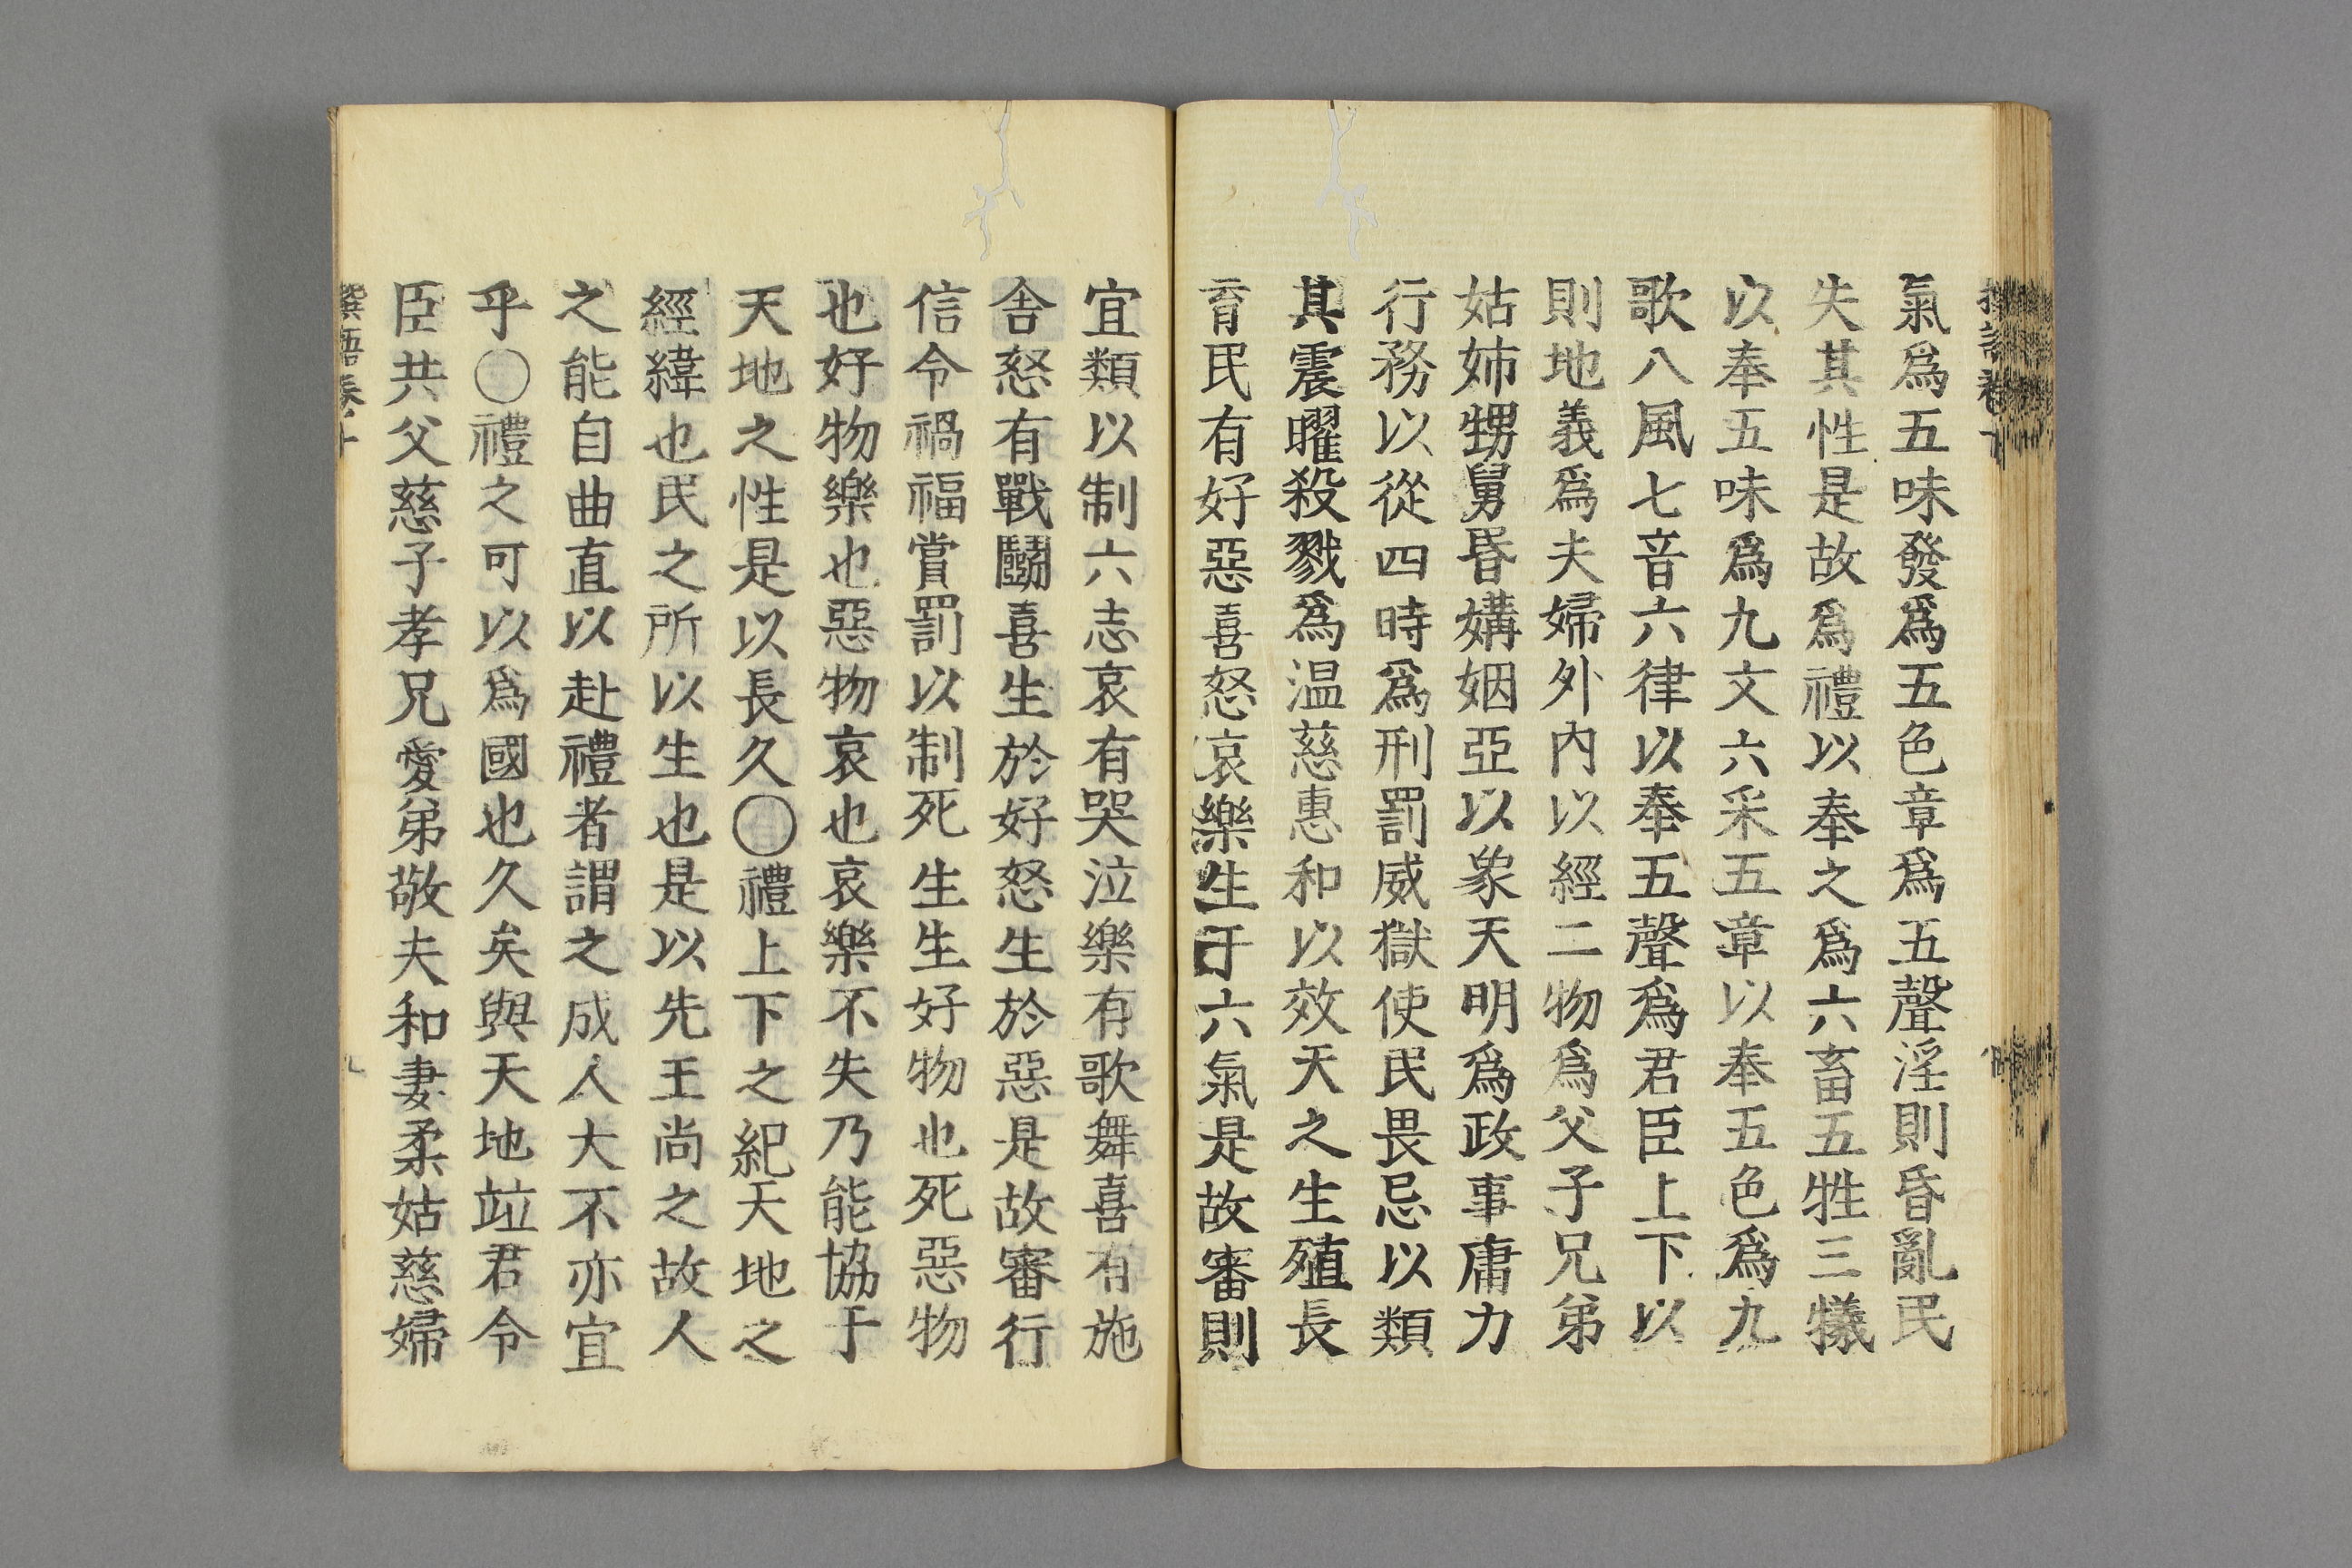 氣爲五味發爲五色章爲五聲淫則昏亂民
失其性是故爲禮以奉之爲六畜五牲三犧
以奉五味爲九文六采五章以奉五色爲九
歌八風七音六律以奉五聲爲君臣上下以
則地義爲夫婦外內以經二物爲父子兄弟
姑姉甥舅昬媾姻亞以象天明爲政事庸力
行務以從四時爲刑罰威獄使民畏忌以類
其震曜殺戮爲温慈惠和以效天之生殖長
育民有好惡喜怒哀樂生于六氣是故審則
宜類以制六志哀有哭泣樂有歌舞喜有施
舎怒有戰鬬喜生於好怒生於惡是故審行
信令禍福賞罰以制死生生好物也死惡物
也好物樂也惡物哀也哀樂不失乃能協于
天地之性是以長久〇禮上下之紀天地之
經緯也民之所以生也是以先王尚之故人
之能自曲直以赴禮者謂之成人大不亦宜
乎〇禮之可以爲國也久矣與天地竝君令
臣共父慈子孝兄愛弟敬夫和妻柔姑慈婦